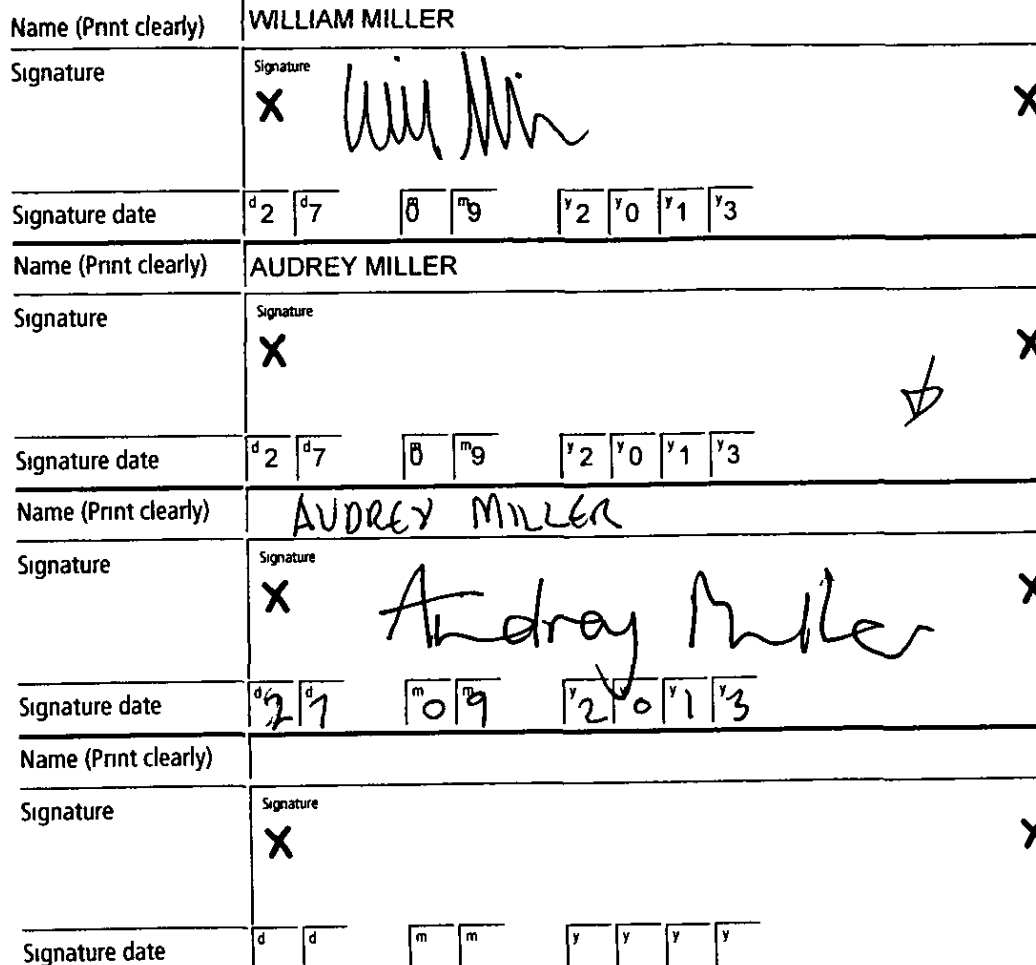 Name (Print clearly) WILLIAM MILLER
Signature Signature
X Will Mill X
Signature date d2 d7 m0 m9 y2 y0 y1 y3
Name (Print clearly) AUDREY MILLER
Signature Signature
X X
Signature date d2 d7 m0 m9 y2 y0 y1 y3
Name (Print clearly) AUDREY MILLER
Signature Signature
X Audrey Miller X
Signature date d2 d7 m0 m9 y2 y0 y1 y3
Name (Print clearly)
Signature Signature
X X
Signature date d d m m y y y y